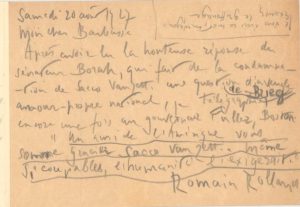 Samedi 20 août 1927
Mon cher Barbusse
Après avoir lu la honteuse réponse du
sénateur Borah, qui fait de la condamna-
tion de Sacco Vanzetti une question d'
amour-propre national, je télégraphie
encore une fois au gouverneur Fuller, Boston
"Un ami de l'Amérique vous
somme Gracier Sacco Vanzetti. Même
si coupables, l'humanité l'exigerait.
Romain Rolland